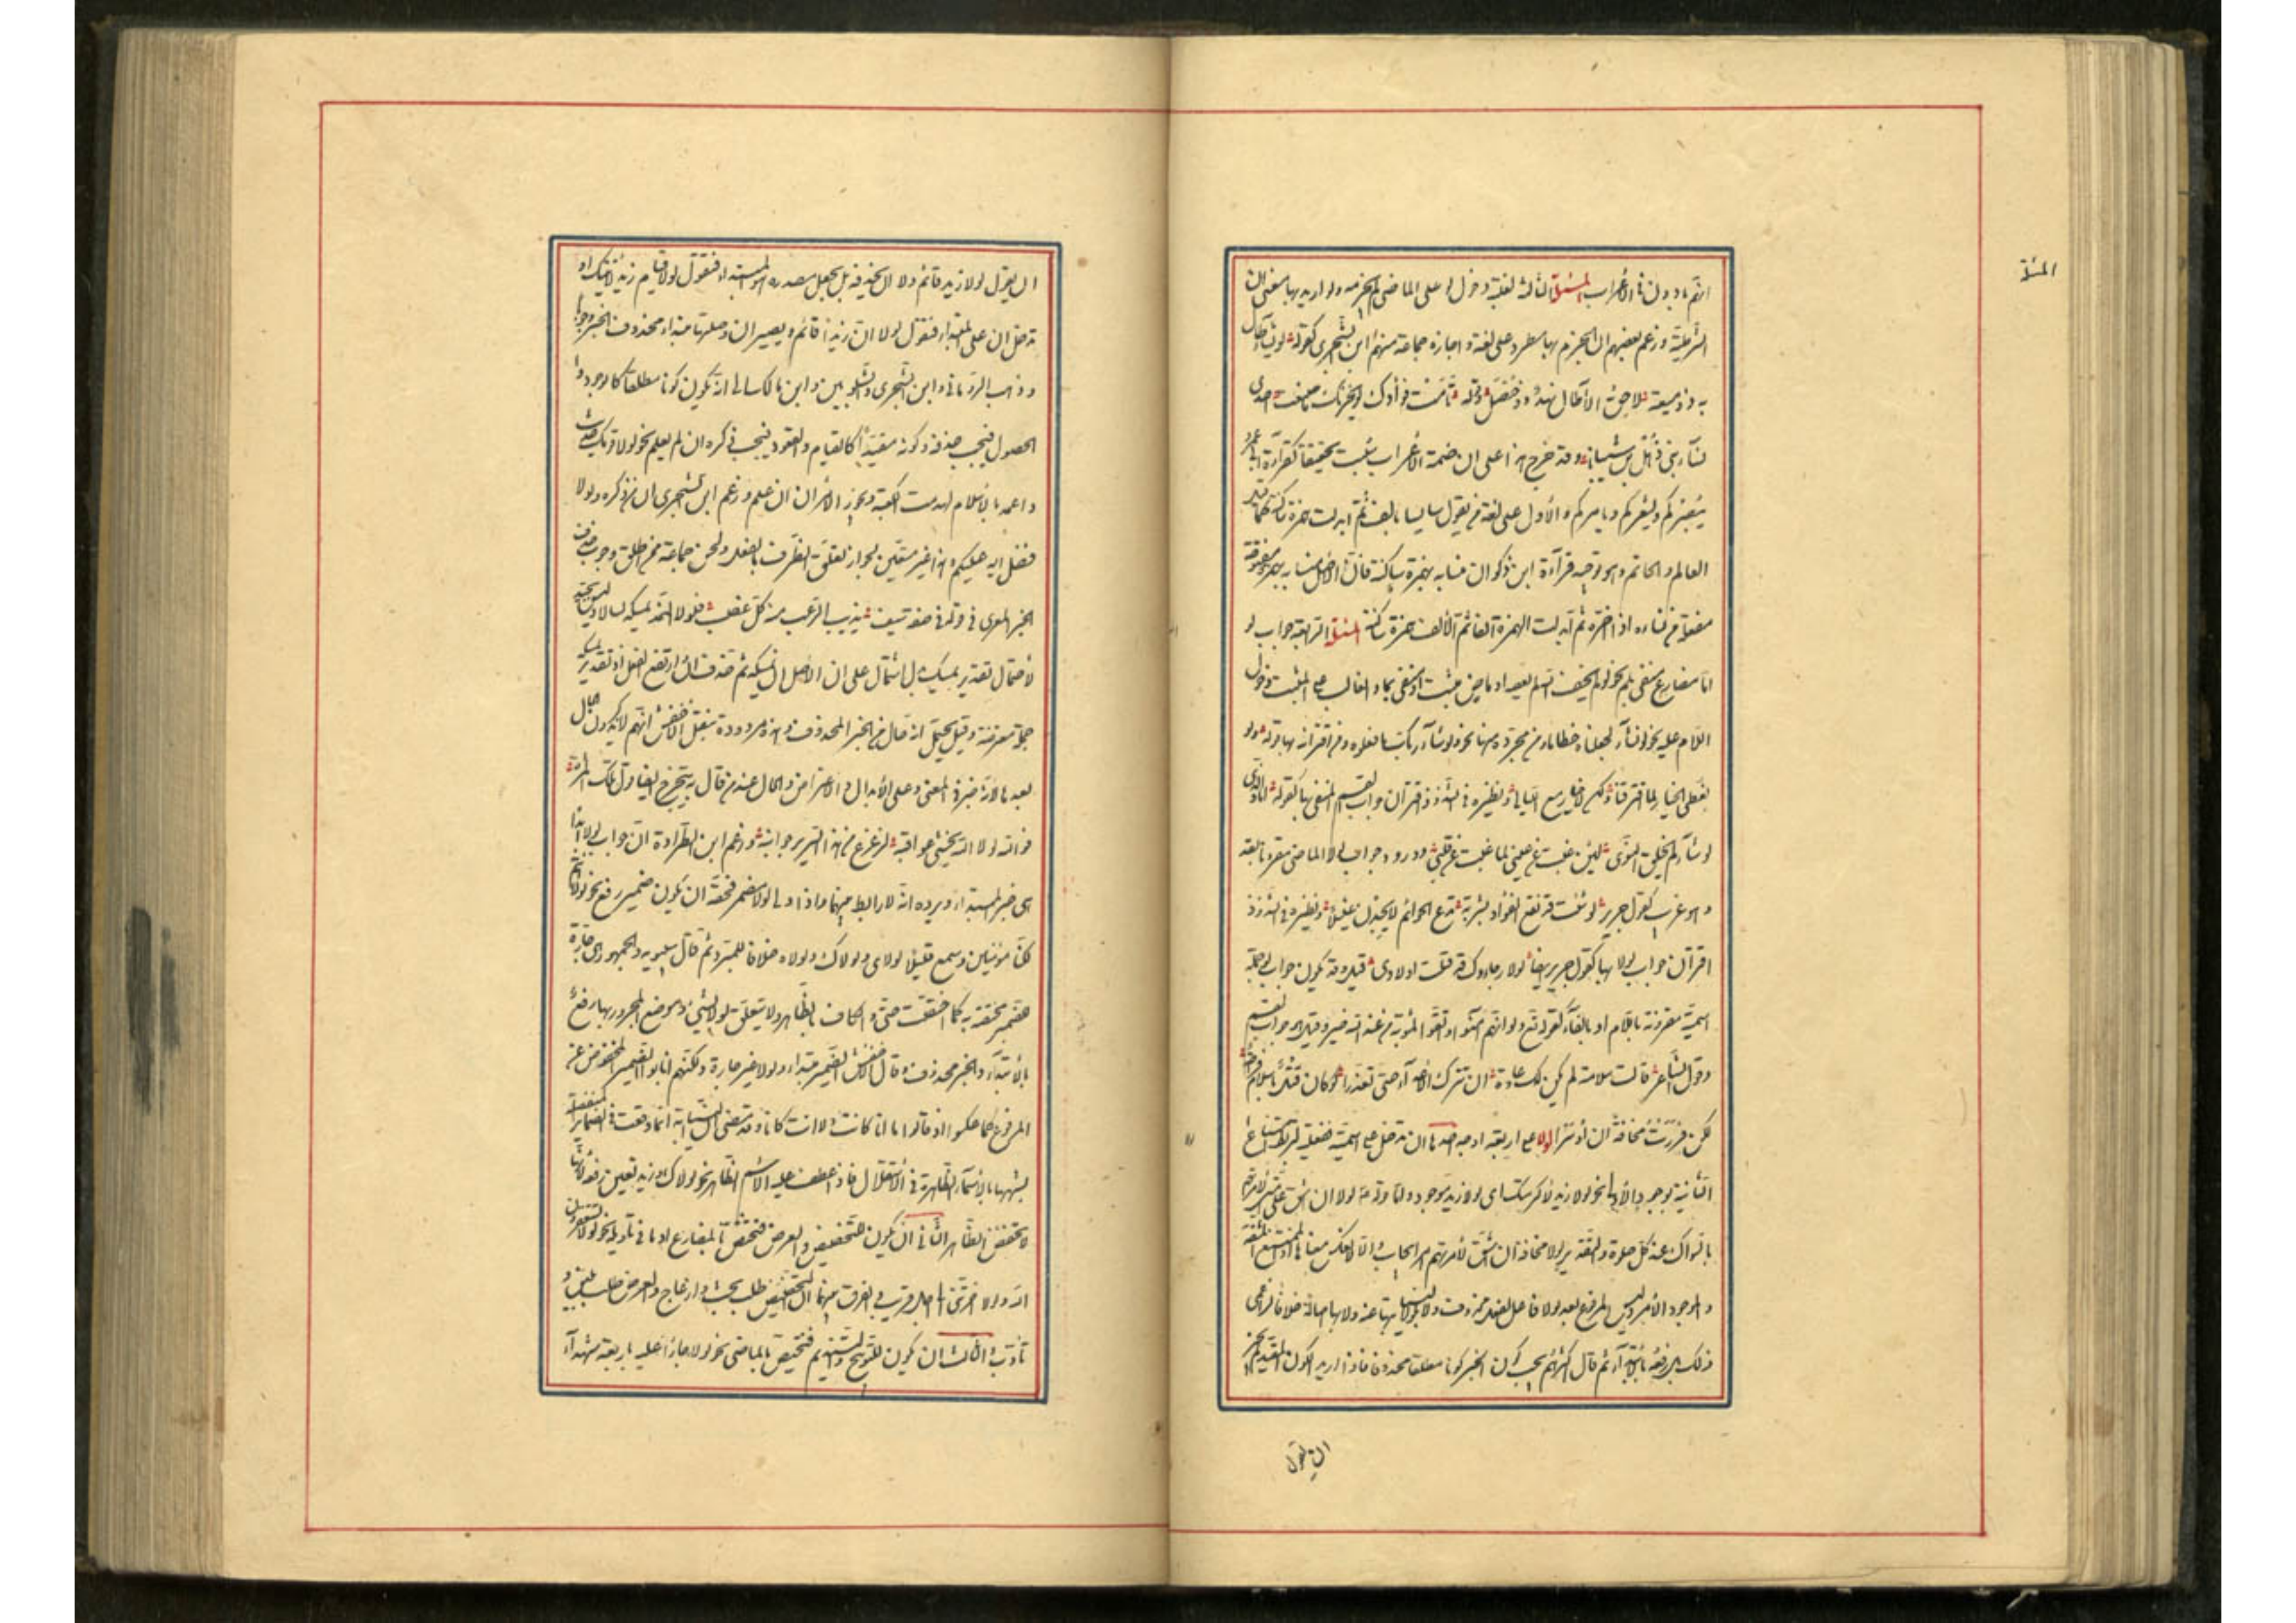 المسئلة
انهم بادون في الأعراب المسئلة الثالثة لغلبة دخول لو على الماضي لم تجزم ولو اريد بها معنى إن
الشرطية وزعم بعضهم ان الجزم بها مطرد على لغة واجازه جماعة منهم ابن الشجري كقوله لو يشأ طار
به ذو ميعة لاحق الآطال نهد ذو خصل وقوله تامت فؤادك لو يحزنك ما صنعت احدى
نساء بني ذهل بن شيبانا وقد خرج هذا على ان ضمة الأعراب سكنت تخفيفا كقراءة ابي عمرو
ينصركم ويشعركم ويأمركم والأول على لغة من يقول شا يشا بالف ثم ابدلت همزة ساكنة كما قيل
العالم والخاتم وهو توجيه قراءة ابن ذكوان منسأته بهمزة ساكنة فان الاصل منسأته بهمزة مفتوحة
مفعلة من نساه اذا اخره ثم ابدلت الهمزة الفا ثم الألف همزة ساكنة المسئلة الرابعة جواب لو
اما مضارع منفي بلم نحو لو لم يخف الله لم يعصه او ماض مثبت او منفي بما والغالب على المثبت دخول
اللام عليه نحو لو نشاء لجعلناه حطاما ومن تجرده منها نحو لو نشاء جعلناه اجاجا والغالب على المنفي تجرده منها نحو ولو شاء ربك ما فعلوه ومن اقترانه بها قوله ولو
نعطى الخيار لما افترقنا ولكن لا خيار مع الليالي ونظيره في الشذوذ اقتران جواب القسم المنفي بما بها كقوله اما والذي
لو شاء لم يخلق النوى لئن غبت عن عيني لما غبت عن قلبي وورد جواب لو الماضي مقرونا بقد
وهو غريب كقول جرير لو شئت قد نقع الفؤاد بشربة تدع الحوائم لا يجدن غليلا ونظيره في الشذوذ
اقتران جواب لولا بها كقول جرير ايضا لولا رجاؤك قد قتلت اولادي قيل وقد يكون جواب لو جملة
اسمية مقرونة باللام او بالفاء كقوله تعالى ولو انهم آمنوا واتقوا لمثوبة من عند الله خير وقيل هي جواب لقسم
وقول الشاعر قالت سلامة لم يكن لك عادة ان تترك الاعداء حتى تعذرا لو كان قتل يا سلام فراحة
لكن فررت مخافة ان اوسرا لولا على اربعة اوجه احدها ان تدخل على اسمية ففعلية لربط امتناع
الثانية بوجود الأولى نحو لولا زيد لاكرمتك اي لولا زيد موجود ولما قوله لولا ان اشق على امتي لأمرتهم
بالسواك عند كل صلوة والتقدير لولا مخافة ان اشق لأمرتهم امر ايجاب والا لانعكس معناها اذ الممتنع المشقة
والموجود الأمر وليس المرفوع بعد لولا فاعلا بفعل محذوف ولا بلولا لنيابتها عنه ولا بها اصالة خلافا لزاعمي
ذلك بل رفعه بالابتداء ثم قال اكثرهم يجب كون الخبر كونا مطلقا محذوفا فاذا اريد الكون المقيد لم يجز
ان تقول
ان يقول لولا زيد قائم ولا ان يحذفه بل يجعل مصدره هو المبتداء فتقول لولا قيام زيد لاتيتك او
تدخل ان على المبتداء فتقول لولا ان زيدا قائم ويصير ان وصلتها مبتداء محذوف الخبر وجوبا
وذهب الرماني وابن الشجري والشلوبين وابن مالك الى انه يكون كونا مطلقا كالوجود و
الحصول فيجب حذفه وكونا مقيدا كالقيام والقعود فيجب ذكره ان لم يعلم نحو لولا قومك حديثوا
عهد بالاسلام لهدمت الكعبة ويجوز الامران ان علم وزعم ابن الشجري ان من ذكره ولولا
فضل الله عليكم وهذا غير متعين لجواز تعلق الظرف بالفضل ولحن جماعة ممن اطلق وجوب حذف
الخبر المعري في قوله في صفة سيف يذيب الرعب منه كل عضب فلولا الغمد يمسكه لسالا وليس بجيد
لاحتمال تقدير يمسكه بدل اشتمال على ان الاصل ان يمسكه ثم حذفت ان وارتفع الفعل او تقدير يمسكه
جملة معترضة وقيل يحتمل انه حال من الخبر المحذوف وهذا مردود بنقل الأخفش انهم لا يذكرون الحال
بعدها لانه خبر في المعنى وعلى الأبدال والاعتراض والحال عند من قال به يتخرج ايضا قول تلك المرأة
فوالله لولا الله تخشى عواقبه لزعزع من هذا السرير جوانبه وزعم ابن الطراوة ان جواب لولا ابدا
هي خبر المبتداء ويرده انه لا رابط بينهما واذا ولي لولا مضمر فحقه ان يكون ضمير رفع نحو لولا انتم
لكنا مؤمنين وسمع قليلا لولاي ولولاك ولولاه خلافا للمبرد ثم قال سيبويه والجمهور هي جارة
للضمير مختصة به كما اختصت حتى والكاف بالظاهر ولا يتعلق لولا بشيء وموضع المجرور بها رفع
بالابتداء والخبر محذوف وقال الاخفش الضمير مبتداء ولولا غير جارة ولكنهم انابوا الضمير المخفوض عن
المرفوع كما عكسوا اذ قالوا ما انا كانت ولا انت كانا وقد مضى ان النيابة انما وقعت في الضمائر المنفصلة
لشبهها بالاسماء الظاهرة في الاستقلال فاذا عطف عليه الاسم الظاهر نحو لولاك وزيد تعين رفعه لأنها
لا تخفض الظاهر الثاني ان يكون للتحضيض والعرض فتختص بالمضارع او ما في تأويله نحو لولا تستغفرون
الله ولولا اخرتني الى اجل قريب والفرق بينهما ان التحضيض طلب بحث وازعاج والعرض طلب بلين و
تأدب الثالث ان يكون للتوبيخ والتنديم فتختص بالماضي نحو لولا جاؤا عليه باربعة شهداء